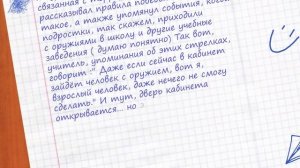 рассказывал правила повед
такое, а также упомянул события, когда
подростки, так скажем, приходили
с оружиями в школу и другие учебные
заведения ( думаю понятно) Так вот,
учитель, упоминания об этих стрелках,
говорит :" Даже если сейчас в кабинет
зайдёт человек с оружием, вот я,
взрослый человек, даже нечего не смогу
сделать." И тут, дверь кабинета
открывается... но